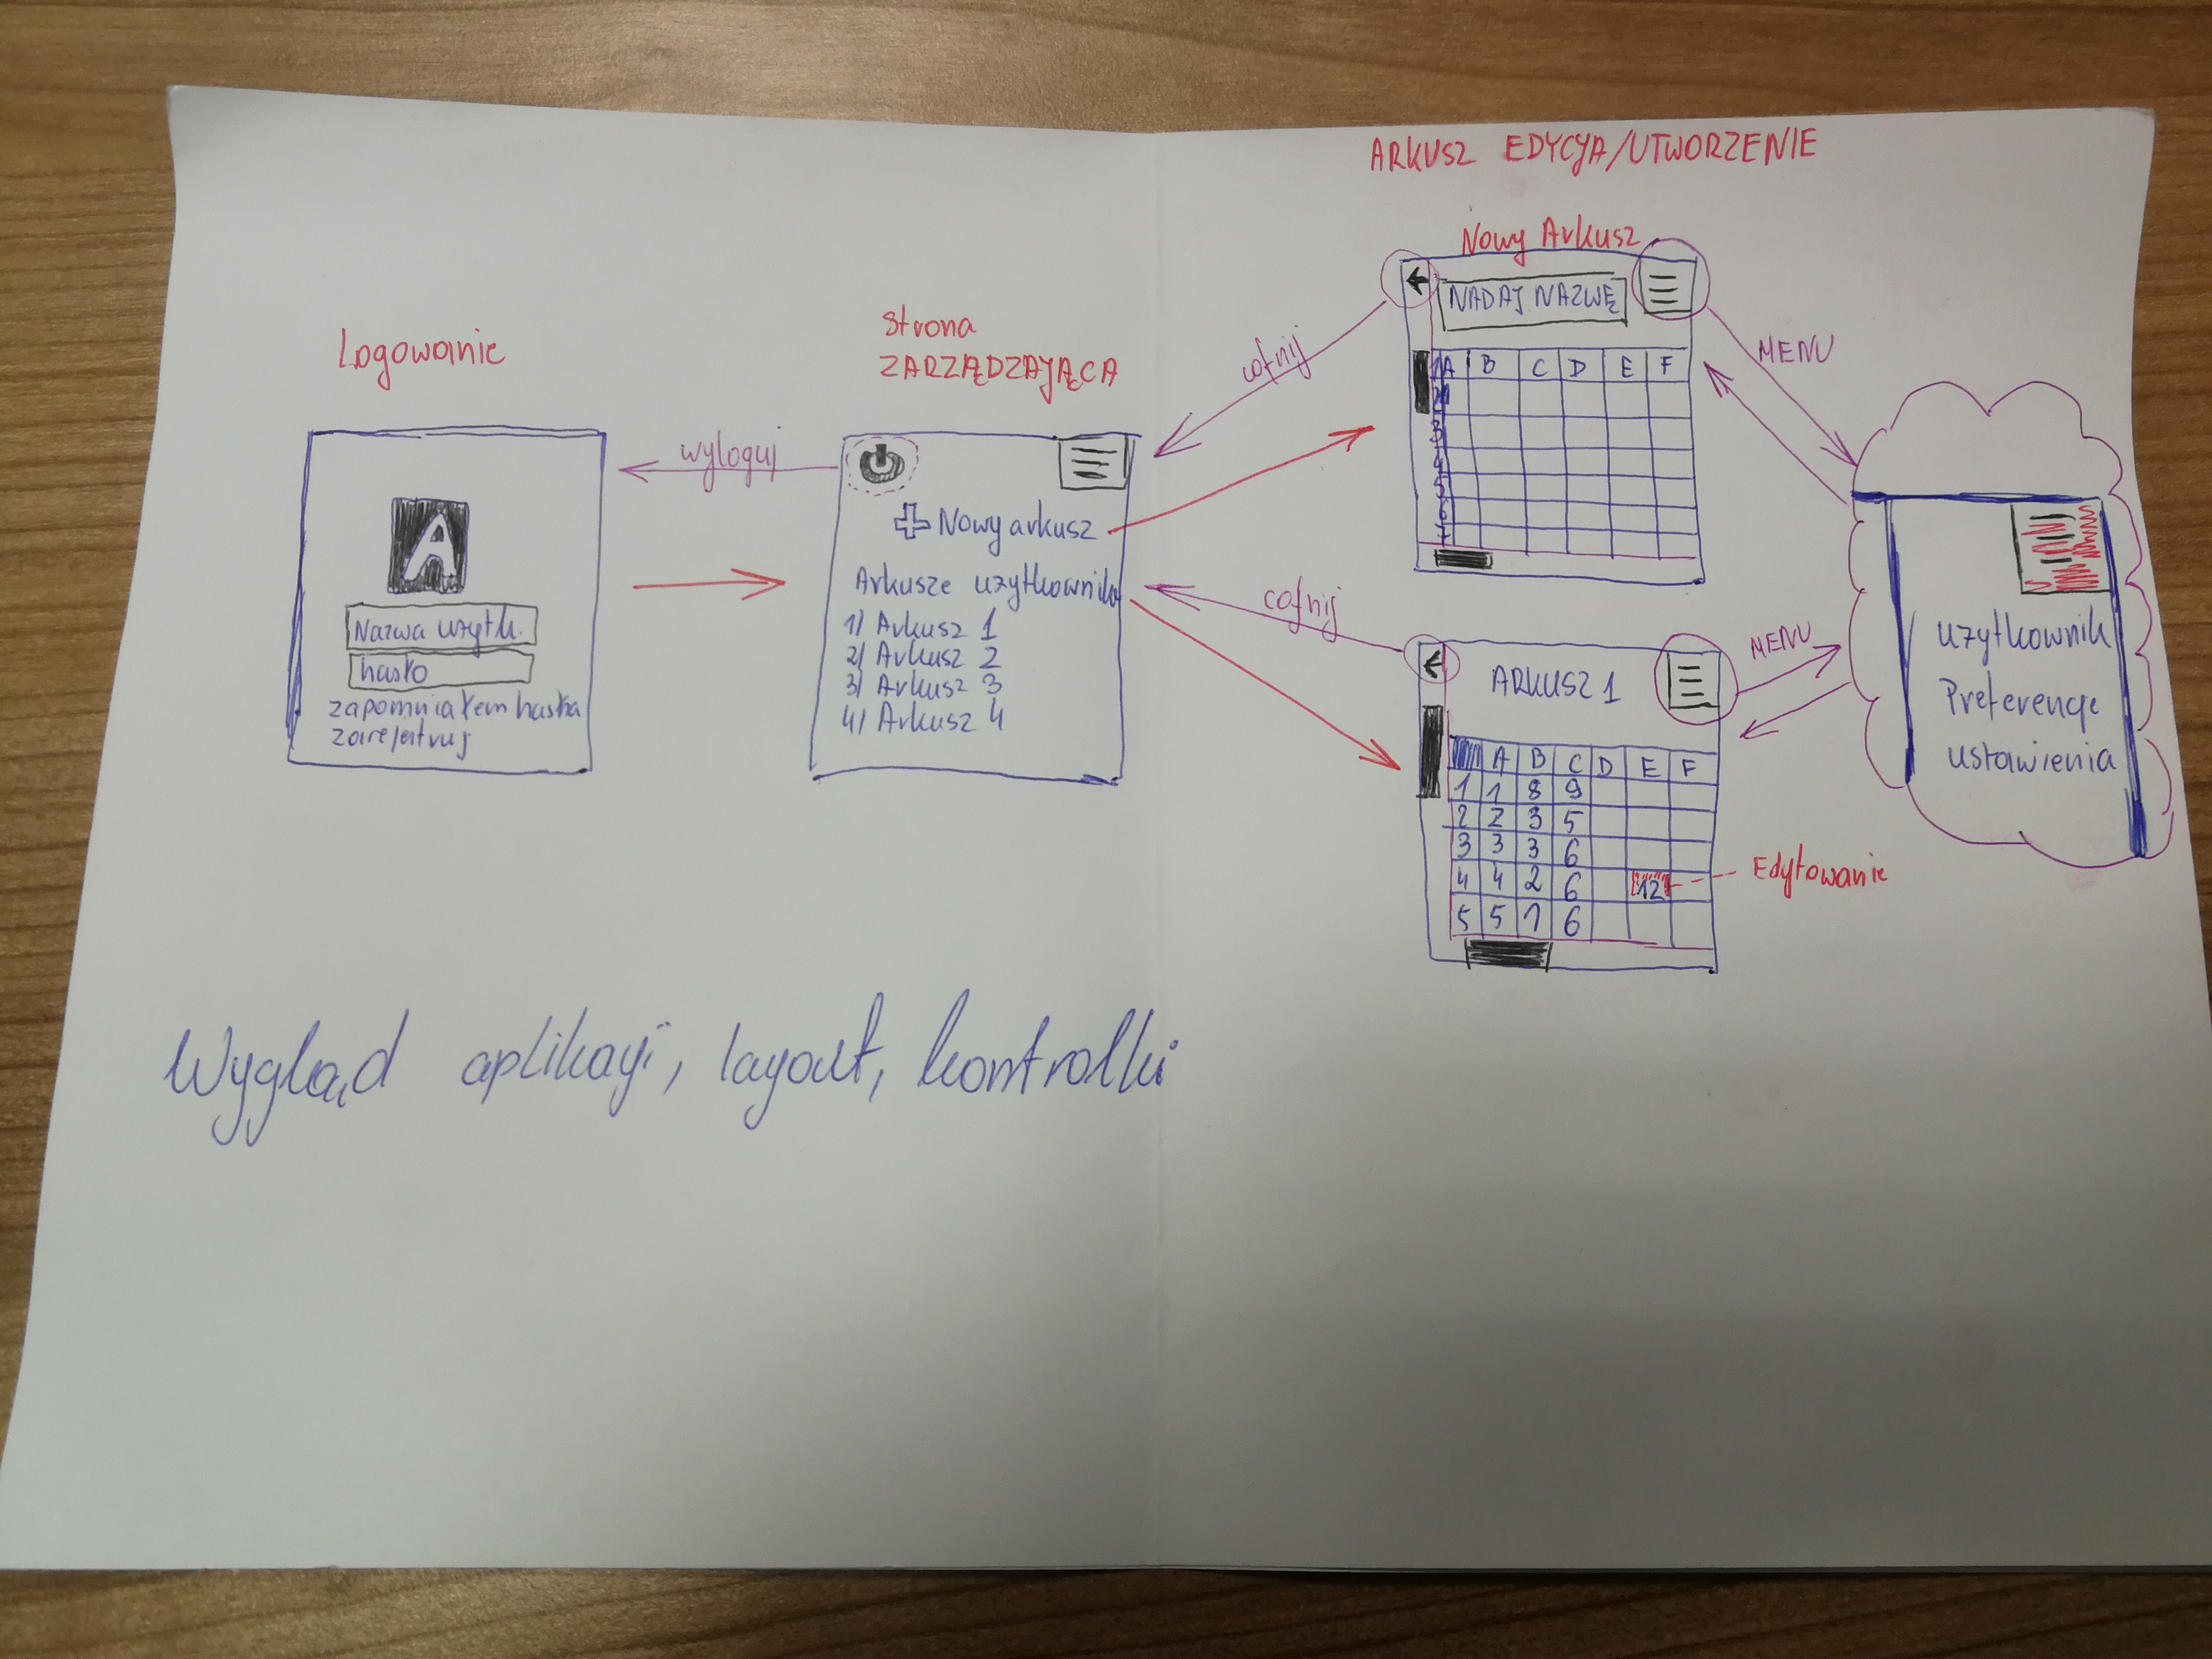 ARKUSZ EDYCJA/UTWORZENIE
Logowanie
A
Nazwa użytk.
hasło
zapomniałem hasła
zarejestruj
wyloguj
Strona
ZARZĄDZAJĄCA
Nowy arkusz
Arkusze użytkownika
1) Arkusz 1
2) Arkusz 2
3) Arkusz 3
4) Arkusz 4
cofnij
cofnij
Nowy Arkusz
NADAJ NAZWĘ
A B C D E F
MENU
ARKUSZ 1
A B C D E F
1 1 8 9
2 2 3 5
3 3 3 6
4 4 2 6 12
5 5 7 6
Edytowanie
MENU
użytkownik
Preferencje
ustawienia
Wygląd aplikacji, layout, kontrolki